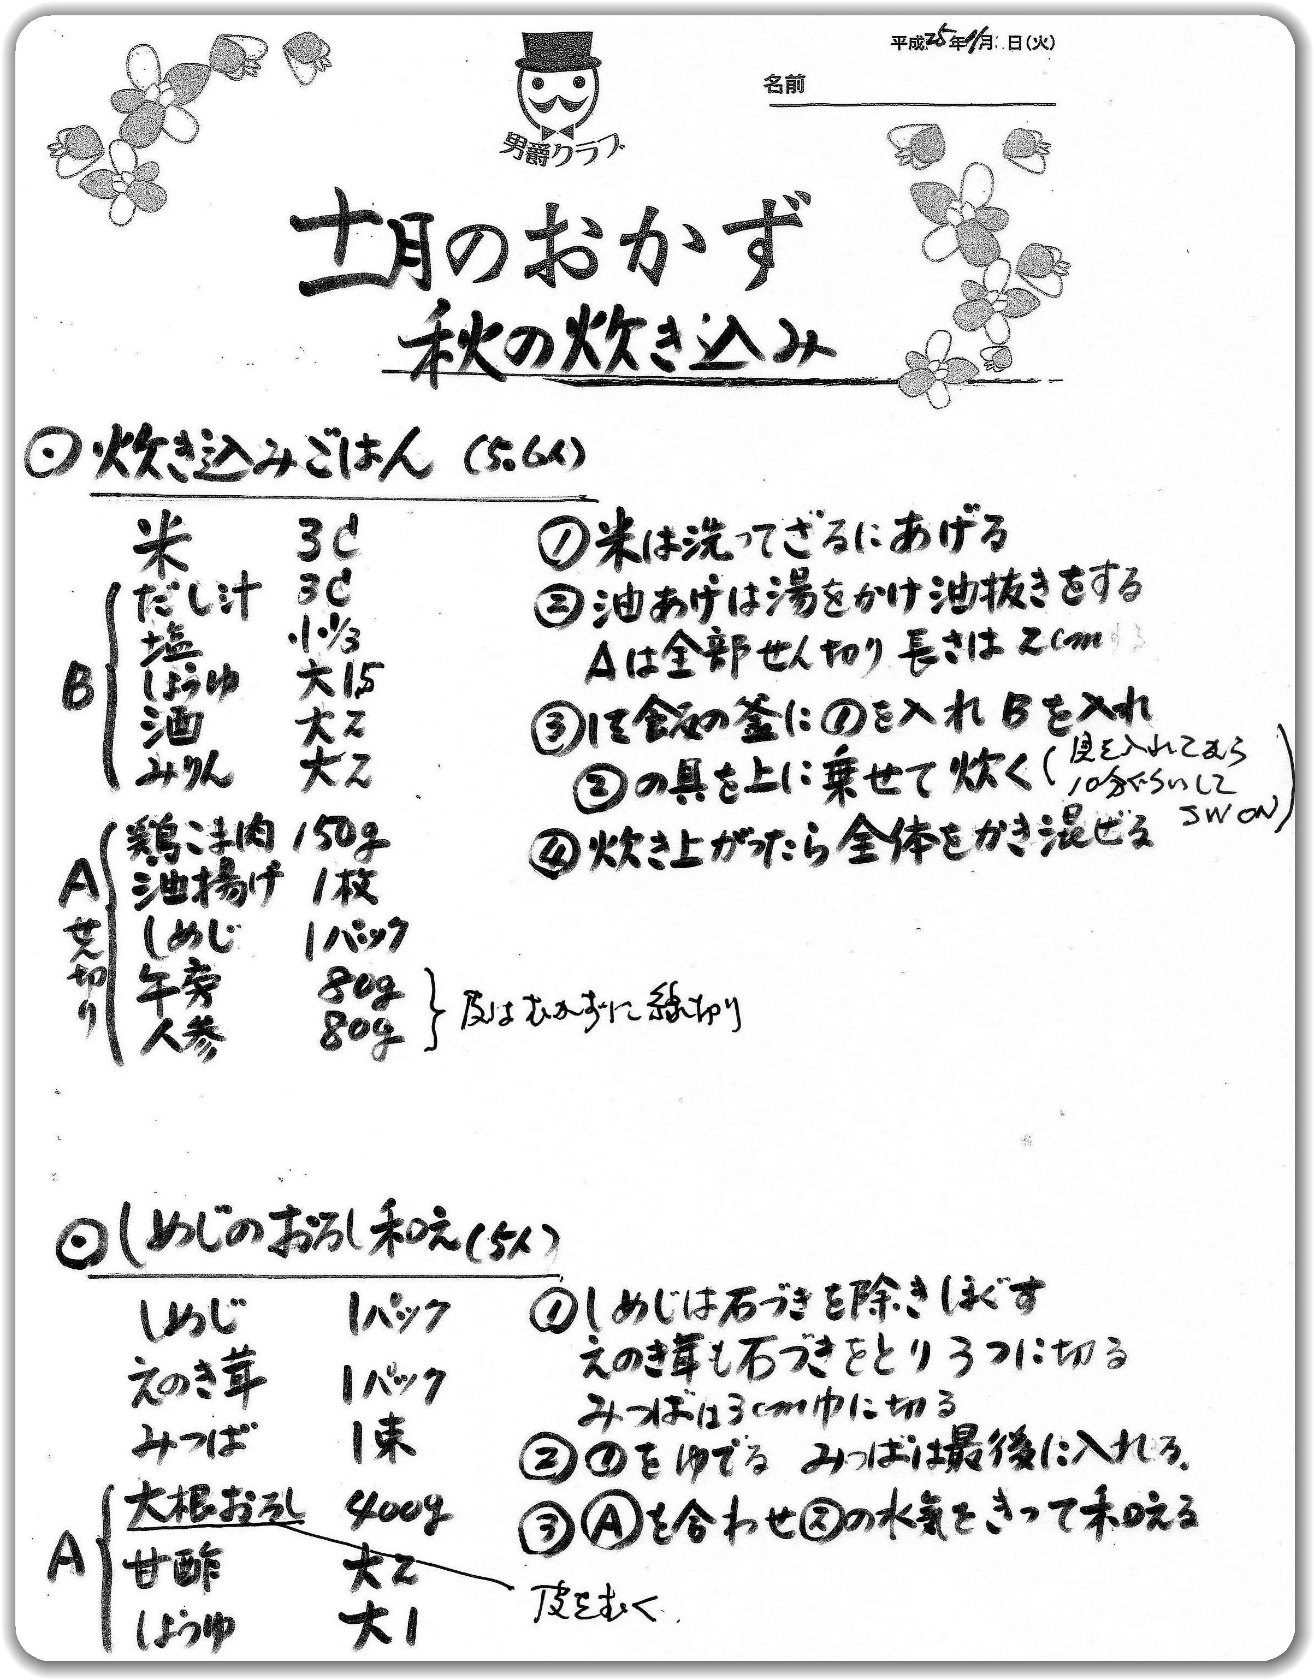 平成25年11月 日(火)
名前
男爵クラブ
十一月のおかず
秋の炊き込み
⊙炊き込みごはん (5.6人)
米 3C
B
だし汁 3C
塩 小1/3
しょうゆ 大1.5
酒 大2
みりん 大2
A せん切り
鶏こま肉 150g
油揚げ 1枚
しめじ 1パック
午旁 80g
人参 80g
皮はむかずに線切り
①米は洗ってざるにあげる
②油あげは湯をかけ油抜きをする
Aは全部せん切り 長さは2cm
③炊飯の釜に①を入れBを入れ
②の具を上に乗せて炊く(具を入れてから
10分ぐらいして
SW ON)
④炊き上がったら全体をかき混ぜる
⊙しめじのおろし和え(5人)
しめじ 1パック
えのき茸 1パック
みつば 1束
A
大根おろし 400g
甘酢 大2
しょうゆ 大1
皮をむく
①しめじは石づきを除きほぐす
えのき茸も石づきをとり3つに切る
みつばは3cm巾に切る
②①をゆでる みつばは最後に入れる.
③Ⓐを合わせ②の水気をきって和える